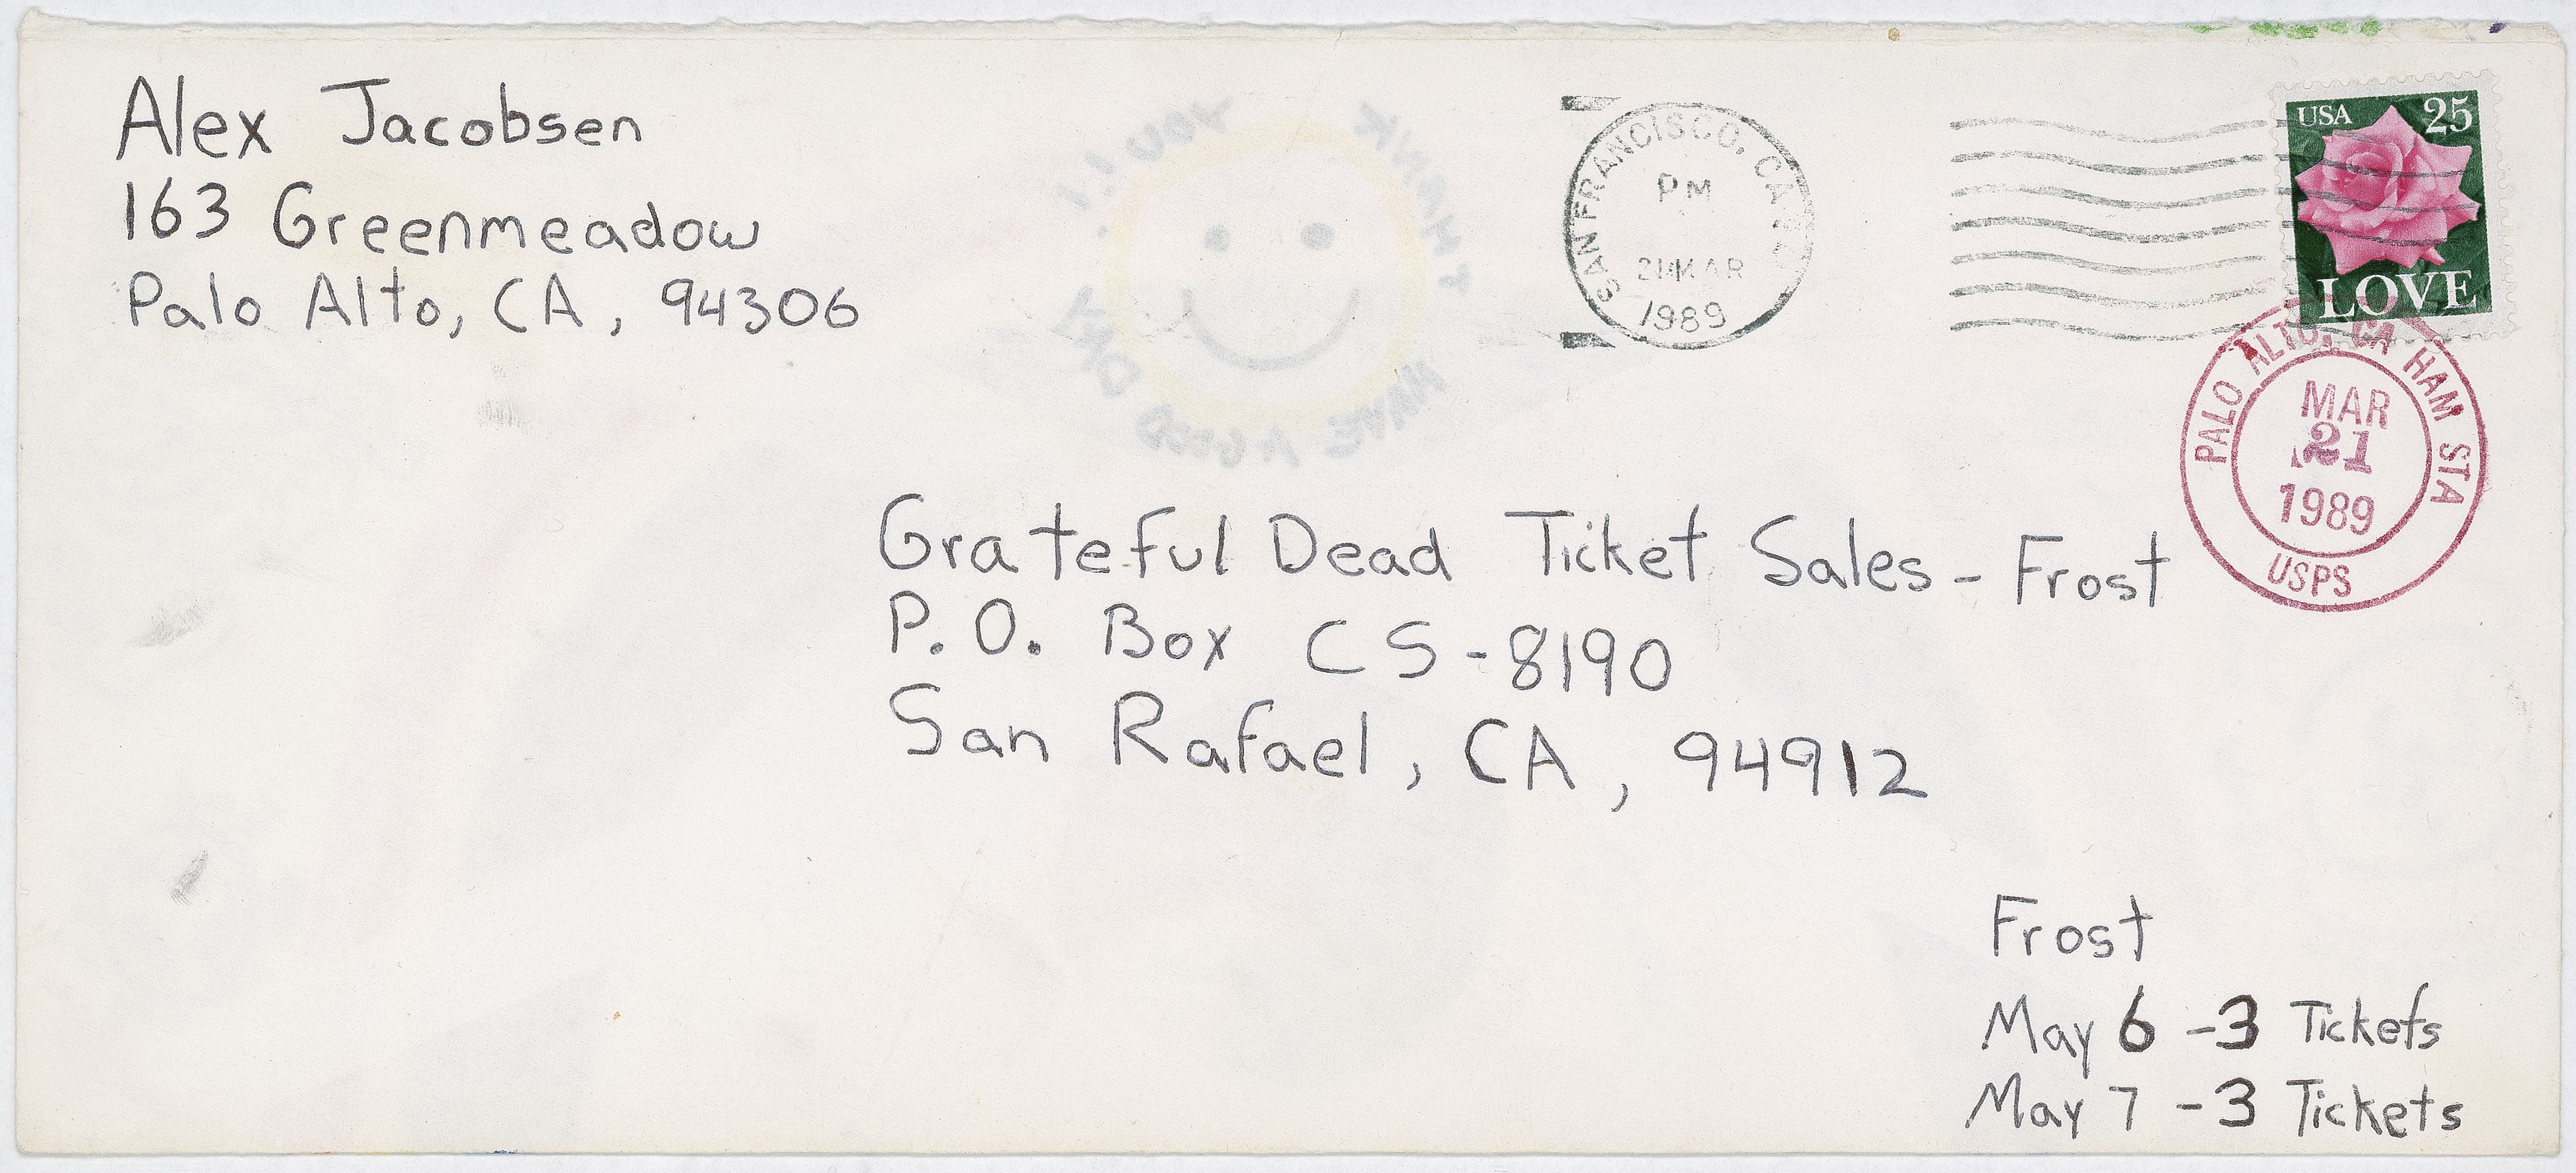 Alex Jacobsen
163 Greenmeadow
Palo Alto, CA, 94306
THANK YOU!!
HAVE A GOOD DAY
SAN FRANCISCO, CA
PM
21 MAR
1989
USA 25
LOVE
PALO ALTO, CA HAM STA
MAR
21
1989
USPS
Grateful Dead Ticket Sales - Frost
P.O. Box CS-8190
San Rafael, CA, 94912
Frost
May 6 - 3 Tickets
May 7 - 3 Tickets